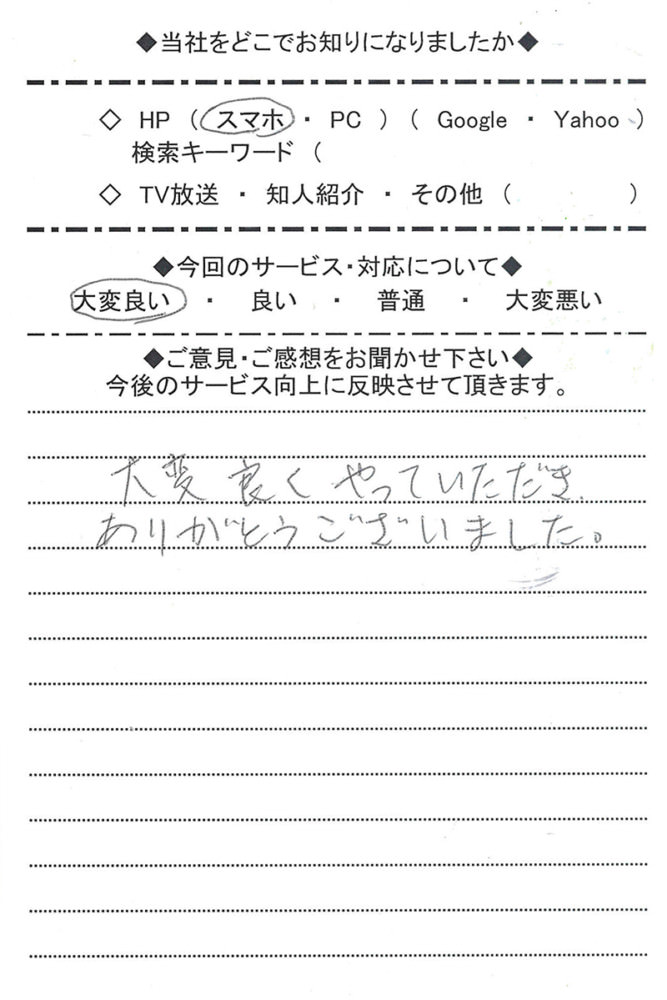 ◆当社をどこでお知りになりましたか◆
◇ HP (スマホ・ PC ) ( Google ・ Yahoo )
検索キーワード (
◇ TV放送 ・ 知人紹介 ・ その他 ( )
◆今回のサービス・対応について◆
大変良い ・ 良い ・ 普通 ・ 大変悪い
◆ご意見・ご感想をお聞かせ下さい◆
今後のサービス向上に反映させて頂きます。
大変良くやっていただき
ありがとうございました。